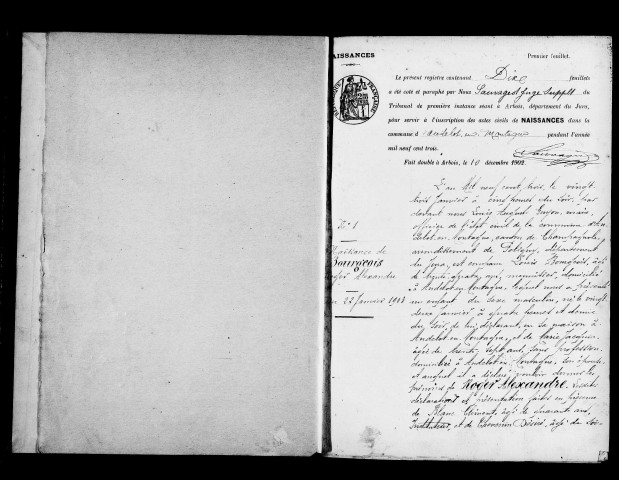 NAISSANCES
Premier feuillet.
Le présent registre contenant Dix feuillets
a été coté et paraphé par Nous Sauvageot Juge Supplét du
Tribunal de première instance séant à Arbois, département du Jura,
pour servir à l'inscription des actes civils de NAISSANCES dans la
commune d'Andelot en Montagne pendant l'année
mil neuf cent trois.
Fait double à Arbois, le 10 décembre 1902.
Sauvageot
N° 1
Naissance de
Bourgeois
Roger Alexandre
du 22 Janvier 1903
L'an Mil neuf cent trois, le vingt
trois janvier à cinq heures du soir, par
devant nous Louis August Guyon, maire
officier de l'état civil de la commune d'An
delot-en-Montagne, canton de Champagnole
arrondissement de Poligny, département
du Jura, est comparu Louis Bourgeois, âgé
de trente quatre ans, menuisier, domicilié
à Andelot-en-Montagne, lequel nous a présenté
un enfant du sexe masculin, né le vingt
deux janvier à quatre heures et demie
du soir, de lui déclarant, en sa maison à
Andelot en Montagne, et de Marie Jacquin
âgée de trente sept ans, sans profession
domiciliée à Andelot-en-Montagne, son épouse,
et auquel il a déclaré vouloir donner les
prénoms de Roger Alexandre. Lesdites
déclaration et présentation faites en présence
de Blanc Clément, âgé de quarante ans,
Instituteur, et de Désiré, âgé de soi-